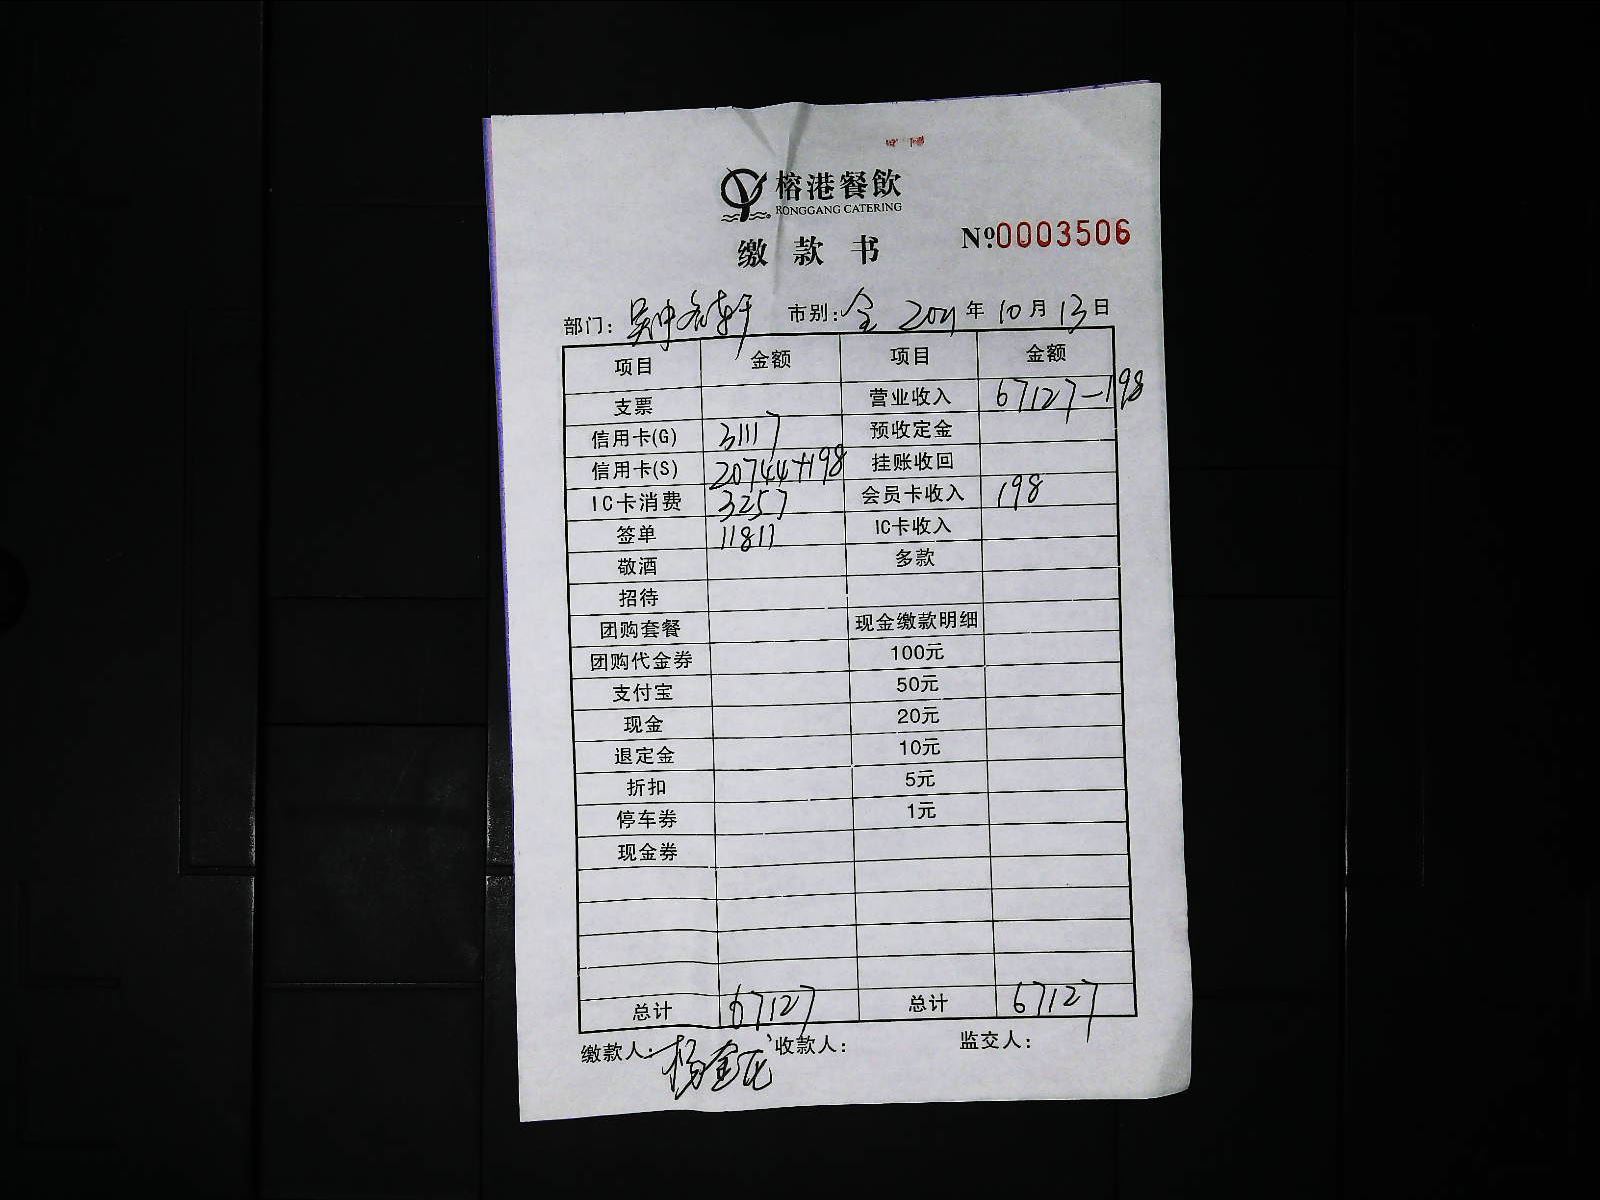 榕港餐飲
RONGGANG CATERING
缴款书
№0003506
部门：吴中名轩 市别：全 2021年10月13日
项目 金额 项目 金额
支票 营业收入 67127-198
信用卡(G) 31117 预收定金
信用卡(S) 20744+198 挂账收回
IC卡消费 3257 会员卡收入 198
签单 11811 IC卡收入
敬酒 多款
招待
团购套餐 现金缴款明细
团购代金券 100元
支付宝 50元
现金 20元
退定金 10元
折扣 5元
停车券 1元
现金券
总计 67127 总计 67127
缴款人：杨金 收款人： 监交人：